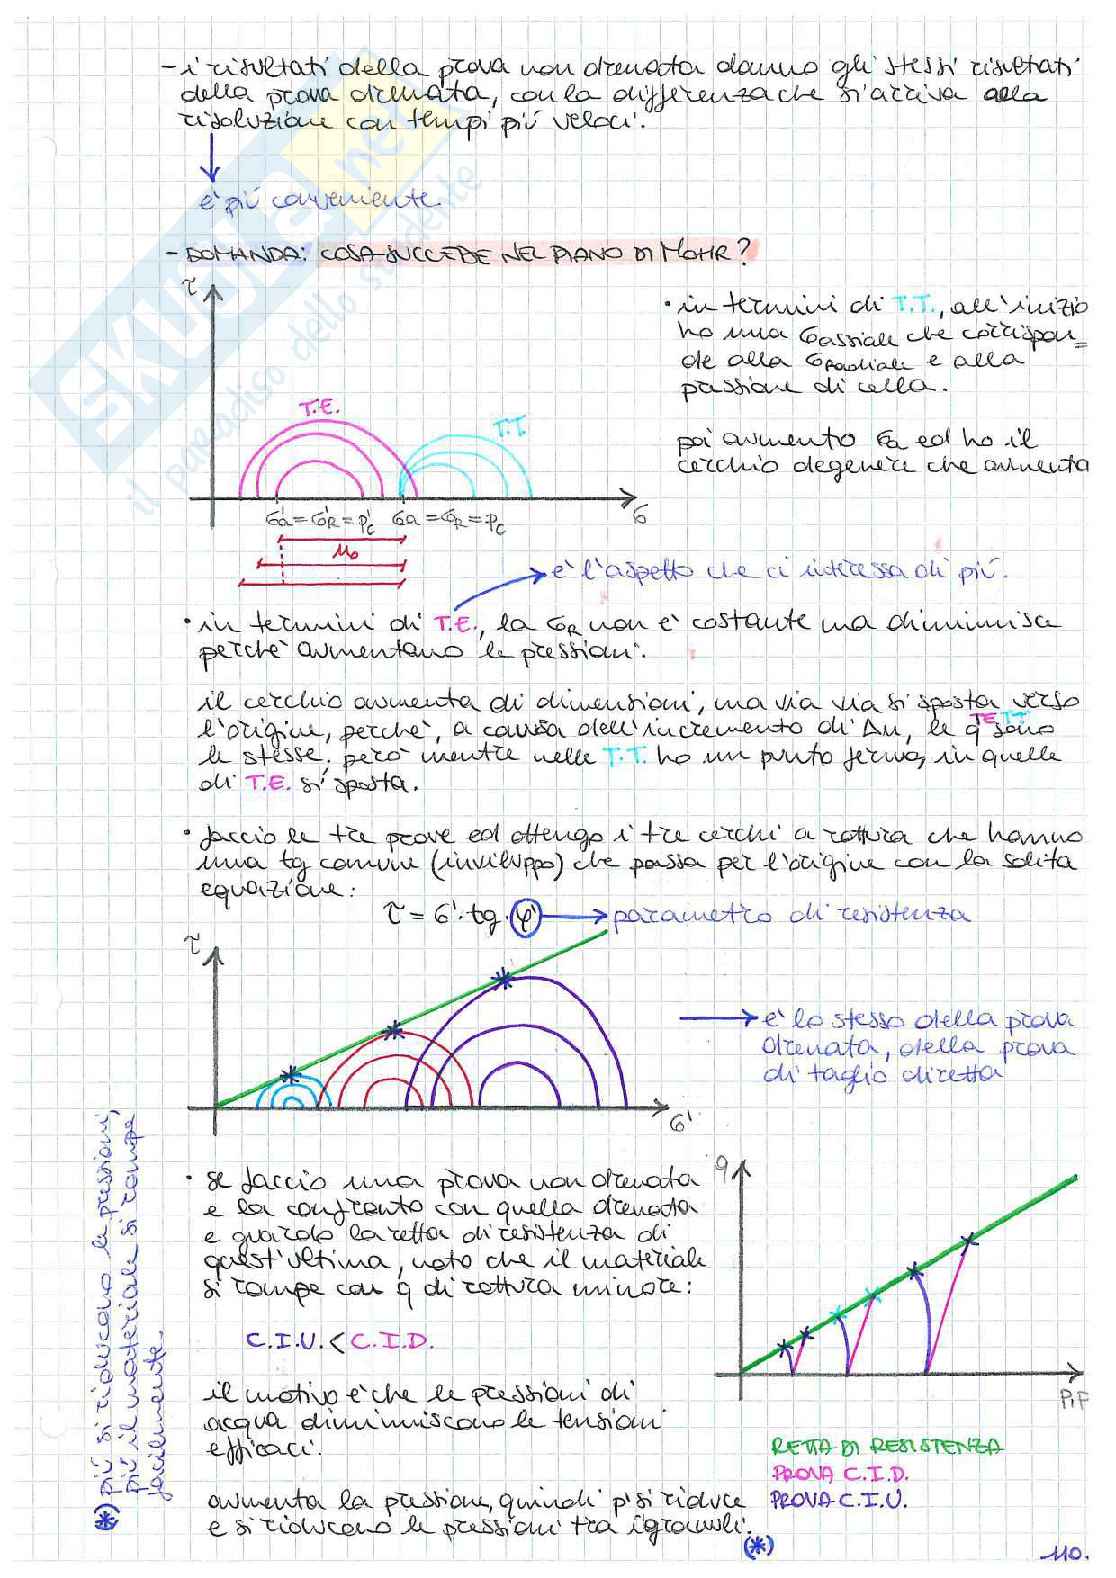 - i risultati della prova non drenata danno gli stessi risultati
della prova drenata, con la differenza che si arriva alla
risoluzione con tempi più veloci.
è più conveniente.
- DOMANDA: COSA SUCCEDE NEL PIANO DI MOHR?
τ
• in termini di T.T., all'inizio
ho una σassiale che corrispon=
de alla σradiale e alla
pressione di cella.
poi aumento σa ed ho il
cerchio degenere che aumenta
T.E.
T.T.
σ'a = σ'R = p'c
σa = σR = pc
σ
μo
è l'aspetto che ci interessa di più.
• in termini di T.E., la σR non è costante ma diminuisce
perché aumentano le pressioni.
il cerchio aumenta di dimensioni, ma via via si sposta verso
l'origine, perché, a causa dell'incremento di Δu, le q TE TT sono
le stesse; però mentre nelle T.T. ho un punto fermo, in quelle
di T.E. si sposta.
• faccio le tre prove ed ottengo i tre cerchi a rottura che hanno
una tg comune (inviluppo) che passa per l'origine con la solita
equazione:
τ = σ'· tg · φ'
parametro di resistenza
τ
è lo stesso della prova
drenata, della prova
di taglio diretta
σ'
• se faccio una prova non drenata
e la confronto con quella drenata
e guardo la retta di resistenza di
quest'ultima, noto che il materiale
si rompe con q di rottura minore:
C.I.U. < C.I.D.
il motivo è che le pressioni di
acqua diminuiscono le tensioni
efficaci.
aumenta la pressione, quindi p' si riduce
e si riducono le pressioni tra i granuli.
(*)
q
p,p'
RETTA DI RESISTENZA
PROVA C.I.D.
PROVA C.I.U.
(*) più si riducono le pressioni,
più il materiale si rompe
facilmente.
110.
SKUOLA.net
il paradiso dello studente